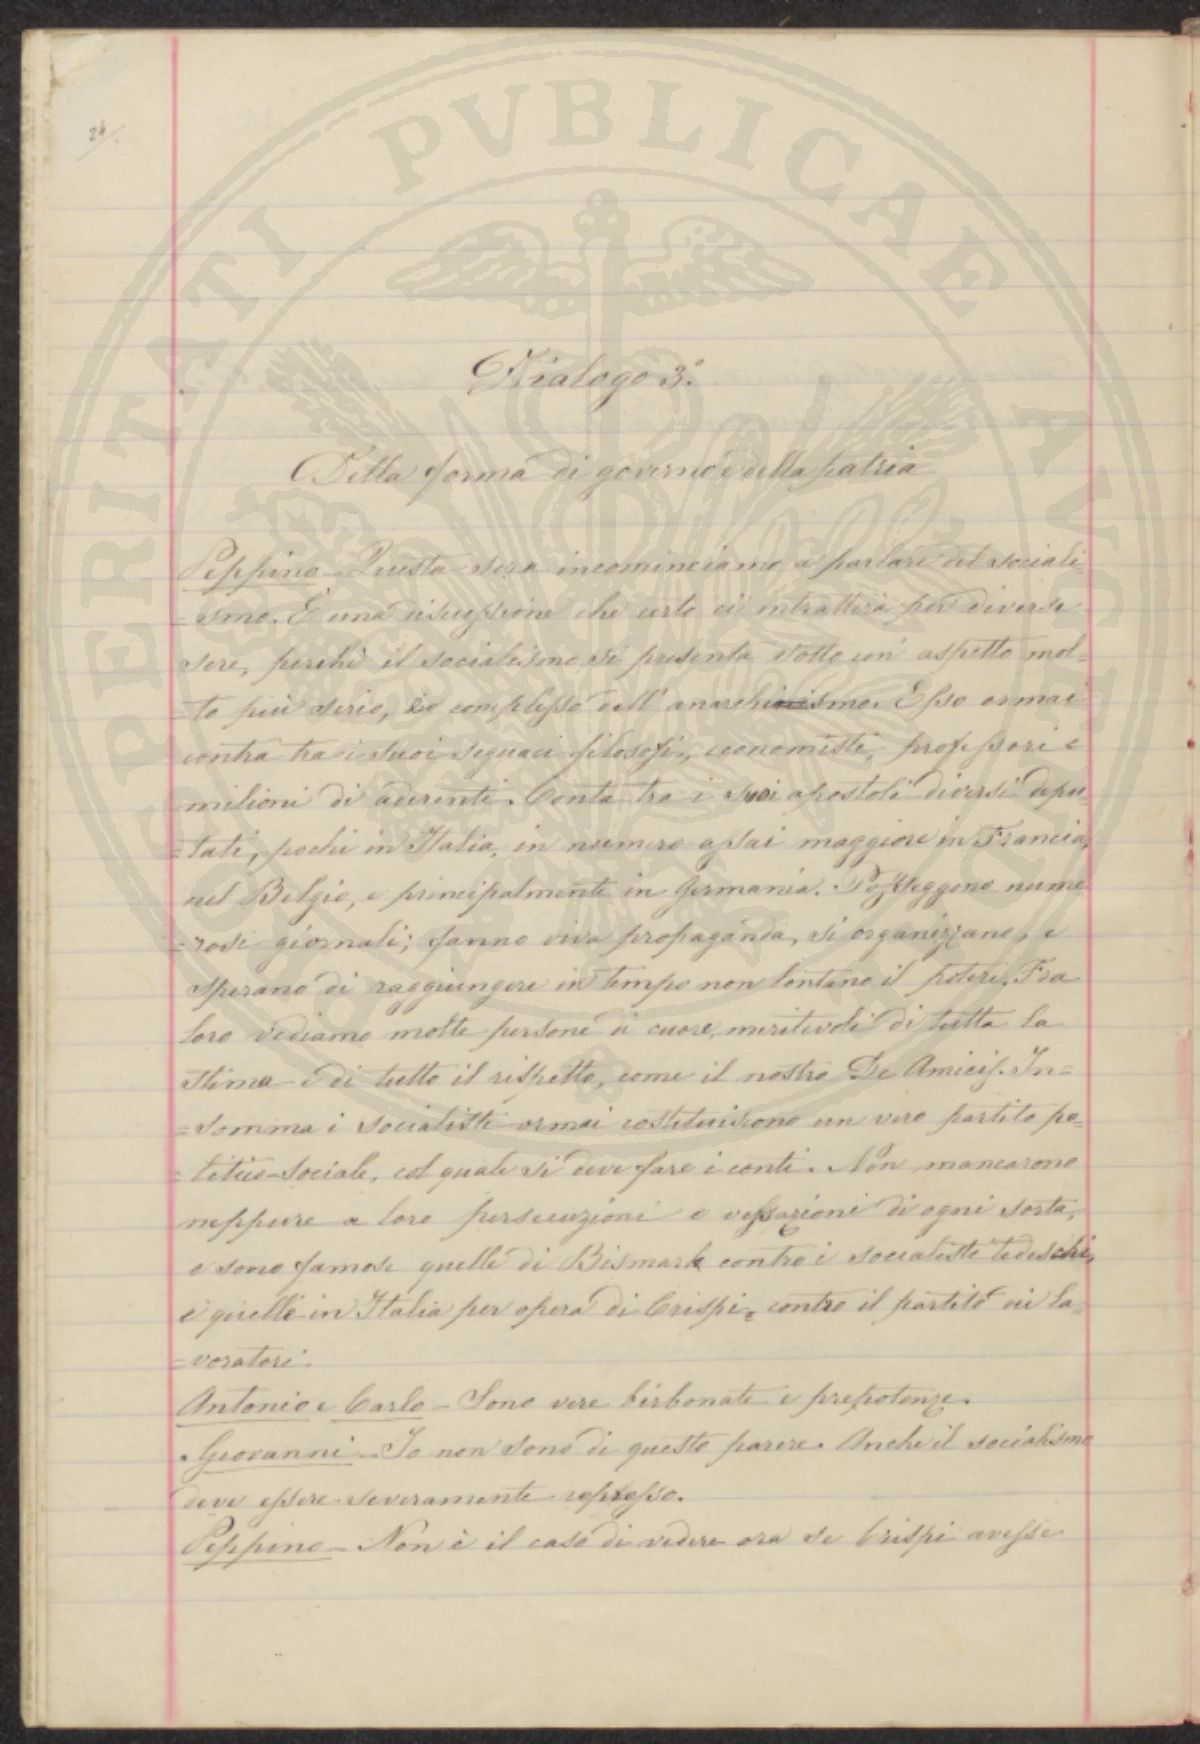 24.
Dialogo 3.°
Della forma di governo e della patria
Peppino - Questa sera incominciamo a parlare del sociali=
=smo. È una discussione che certo ci intratterrà per diverse
sere, perchè il socialismo si presenta sotto un' aspetto mol=
=to più serio, e complesso dell' anarchismo. Esso ormai
conta tra i suoi seguaci filosofi, economisti, professori e
milioni di aderenti. Conta tra i suoi apostoli diversi depu=
=tati, pochi in Italia, in numero assai maggiore in Francia,
nel Belgio, e principalmente in Germania. Posseggono nume
=rosi giornali; fanno viva propaganda, si organizzano, e
sperano di raggiungere in tempo non lontano il potere. Fra
loro vediamo molte persone di cuore, meritevoli di tutta la
stima e di tutto il rispetto, come il nostro De Amicis. In=
=somma i socialisti ormai costituiscono un vero partito po=
=litico-sociale, col quale si deve fare i conti. Non mancarono
neppure a loro persecuzioni e vessazioni di ogni sorta,
e sono famose quelle di Bismark contro i socialisti tedeschi,
e quelle in Italia per opera di Crispi, contro il partito dei la=
=voratori.
Antonio e Carlo - Sono vere birbonate e prepotenze.
Giovanni - Io non sono di questo parere. Anche il socialismo
deve essere severamente represso.
Peppino - Non è il caso di vedere ora se Crispi avesse
SPERITATI PVBLICAE AVGENDAE